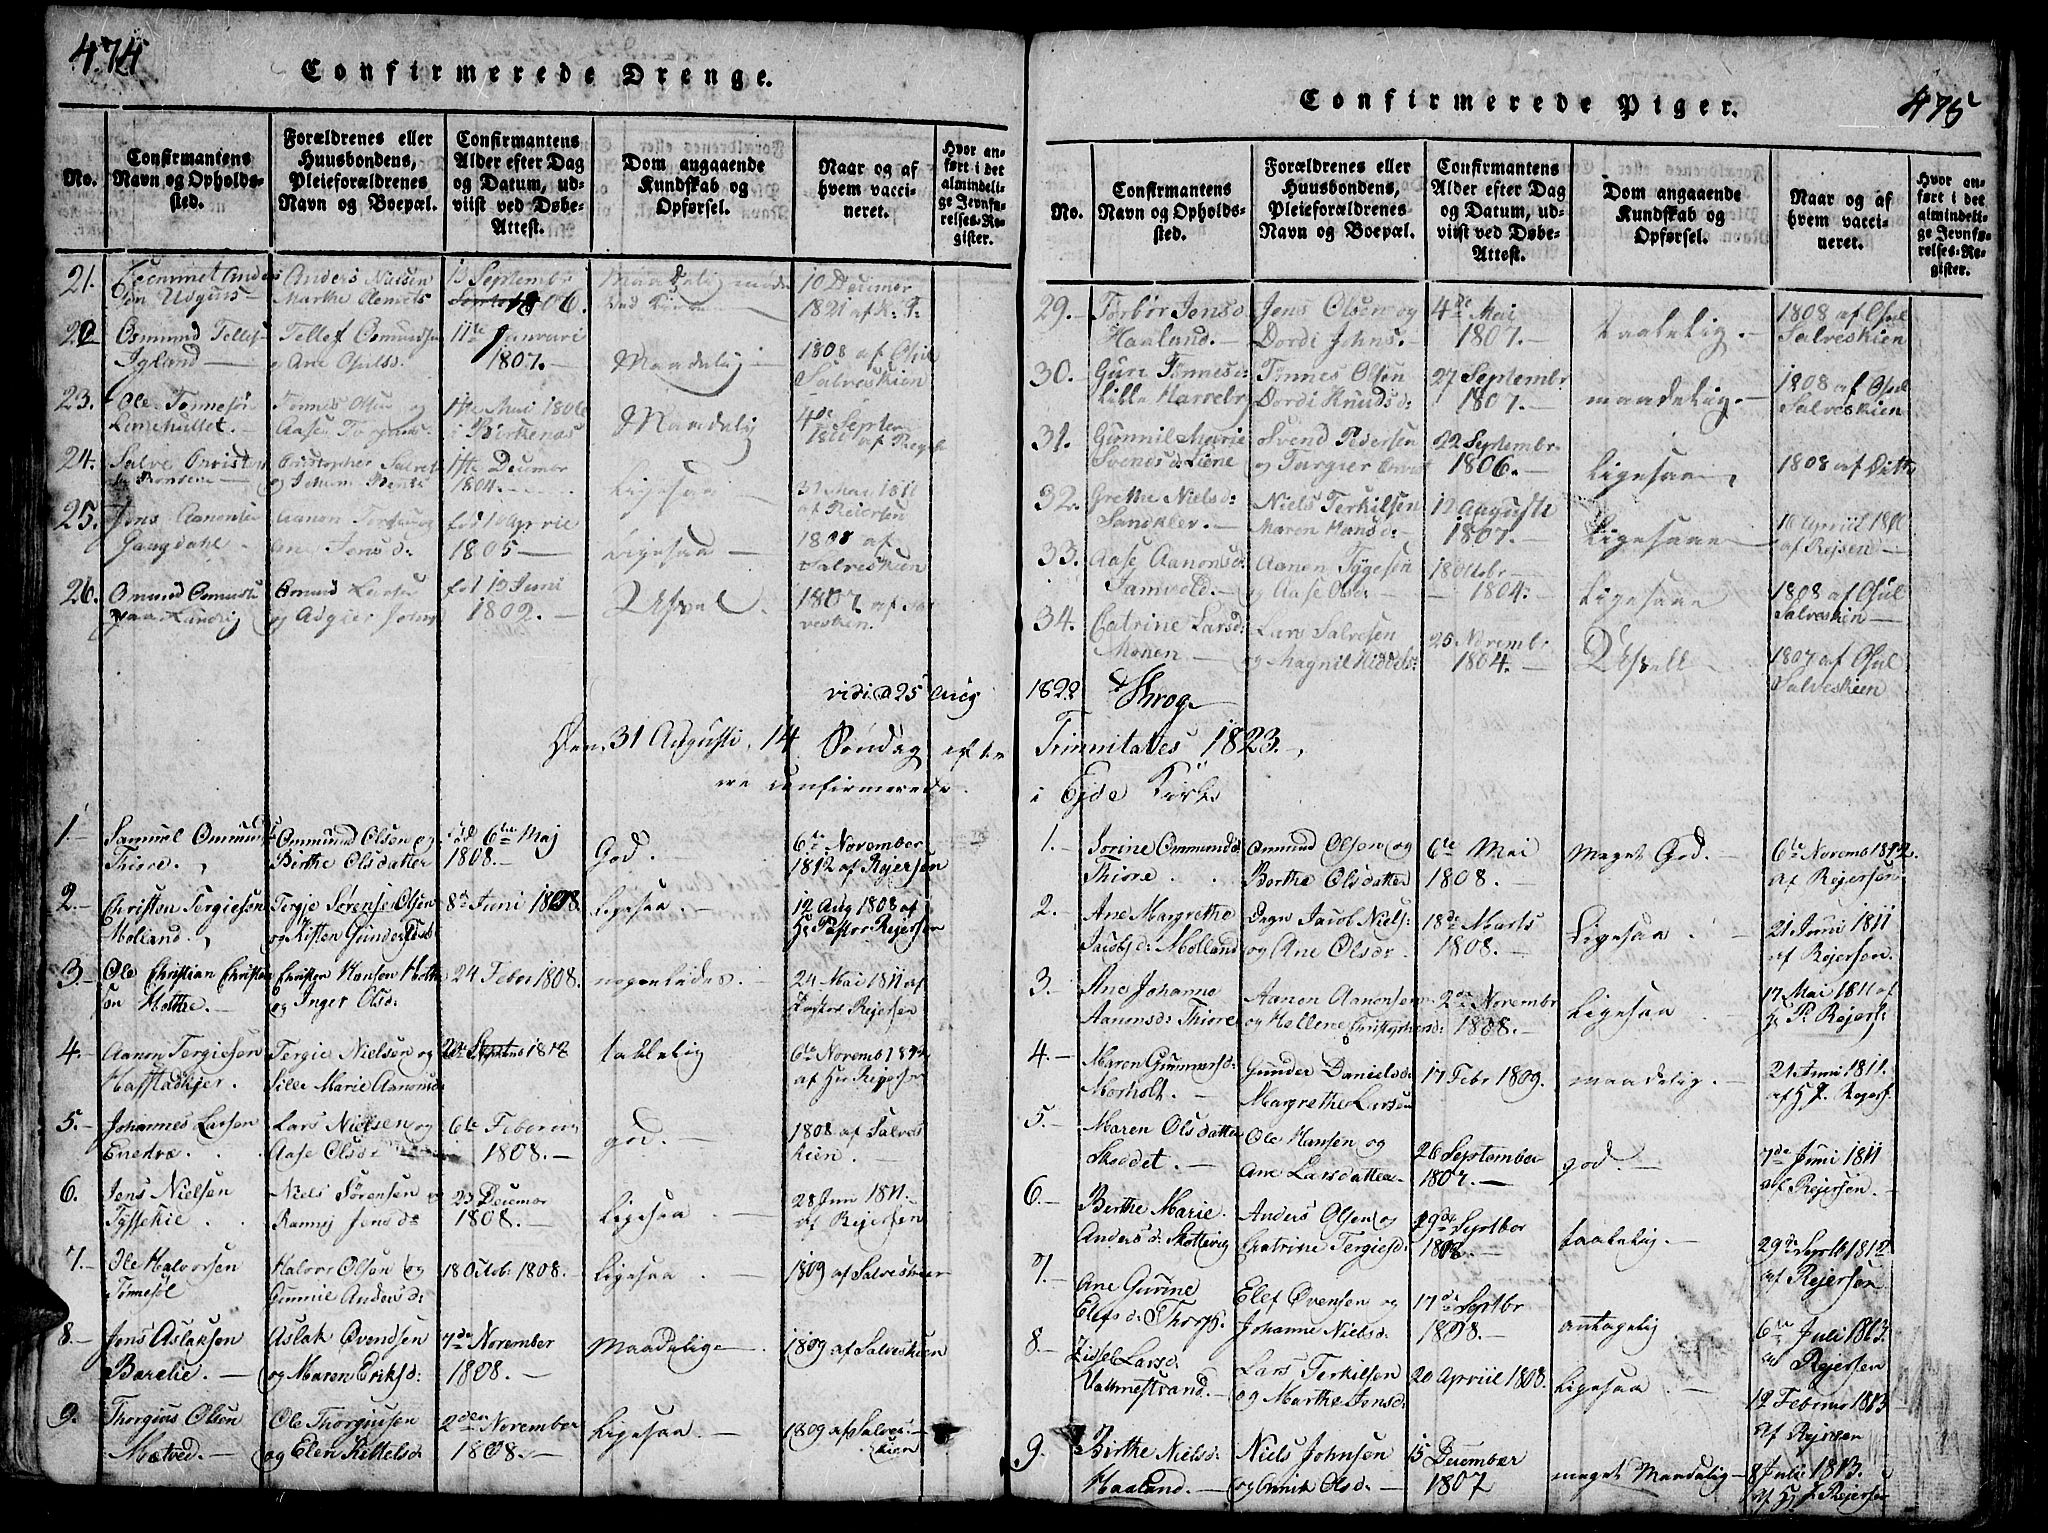 474
Confirmerede Drenge.
No.
Confirmantens
Navn og Opholds-
sted.
Forældrenes eller
Huusbondens,
Pleieforældrenes
Navn og Boepæl.
Confirmantens
Alder efter Dag
og Datum, ud-
viist ved Døbe-
Attest.
Dom angaaende
Kundskab og
Opførsel.
Naar og af
hvem vacci-
neret.
Hvor an-
ført i det
almindeli-
ge Jevnfø-
relses-Re-
gister.
21.
Anders Nielsen
13 Septembr
1806.
10 Decmer
1821 af
22
Osmund Tellefs
Igland
Tellef Osmundsen
og Ane
11te Januari
1807.
Maadelig
1808 af Osul
Salveskien
23.
Ole Tønnesøn
Tønnes Olsen og
Aase
1te Mai 1806
i Birkenæs
Maadelig
4de Septem
1811 af
24.
Salve Christen
Cristopher Salves
14te Decmbr
1804.
Ligesaa
31 Mai 1811
af Reiersen
25.
Jens Aanonsen
Haagdahl
Aanon
Ane Jensd:
fød 10 April
1805
Ligesaa
1808 af
Salveskien
26.
Omund Omunds
paa
Omund Larsen
og Adgier
fød 13 Juni
1802.
Usvel.
1807 af Sal
vesken.
vidi d 25 Aug
Den 31 Augusti, 14 Søndag efter
ere confirmerede
1.
Samuel Ommunds
Thiore.
Ommund Olsen og
Birthe Olsdatter
fød 6te Maj
1808.
God.
6te November
1812 af Rejersen
2.
Christen Tergiesen
Moland.
Tergie Sørensen Olsen
og Kisten Gundersd
8de Juni 1808.
Ligesaa.
12 Aug 1808 af
Hr Pastor Rejersen
3.
Ole Christian Christen
sen Hotthe.
Christen Hansen Hotthe
og Inger Olsd:
24 Feber 1808.
nogenledes.
24 Mai 1811 af
Pastor Rejersen
4.
Aanon Tergiesen
Haffstadkjer.
Tergie Nielsen og
Sille Marie Aanonsd
taalelig
6te Novemb 1812
af Hr Rejersen
5.
Johannes Larsen
Enedræ.
Lars Nielsen og
Aase Olsdr
6te Februar
1808.
god.
1808 af Salves
kien.
6.
Jens Nielsen
Tyssekie.
Niels Sørensen og
Rannej Jensdr
23 Decmbr
1808.
Ligesaa.
28 Jun 1811.
af Rejersen
7.
Ole Halvorsen
Tønnesøl
Halvor Olsen og
Gunnil Andersd:
18 Octob. 1808.
Ligesaa.
1809 af Salveskien
8.
Jens Aslaksen
Barelie.
Aslak Øvendsen
og Maren Eriksd:
7de November
1808.
Maadelig
1809 af Salveskien
9.
Thorgius Olsen
Mætved.
Ole Thorgiusen
og Elen Kittelsd:
2den November
1808.
Ligesaa.
1809 af Salves
kien
475
Confirmerede Piger.
No.
Confirmantens
Navn og Opholds-
sted.
Forældrenes eller
Huusbondens,
Pleieforældrenes
Navn og Boepæl.
Confirmantens
Alder efter Dag
og Datum, ud-
viist ved Døbe-
Attest.
Dom angaaende
Kundskab og
Opførsel.
Naar og af
hvem vacci-
neret.
Hvor an-
ført i det
almindeli-
ge Jevnfø-
relses-Re-
gister.
29.
Torbør Jensd:
Haaland.
Jens Olsen og
Dordi Johns.
4de Mai
1807.
Taalelig.
1808 af Osul
Salveskien
30.
Guri Tønnesd:
Lille Harreby
Tønnes Olsen
Dordi Knudsd:
27 Septembr
1807.
maadelig.
1808 af Osul
Salveskien
31.
Gunnil Marie
Svends d: Liene
Svend Pedersen
og Turgier
22 Septembr.
1806.
Ligesaa
1808 af Ditto
32.
Grethe Nielsd:
Sandkler.
Niels Terkilsen
Maren Hansd:
12 Augusti
1807.
Ligesaa
16 Apriil 1811
af Rejsen
33.
Aase Aanonsd:
Aanon Tygesøn
og Aase Olsdr
1 Octobr
1804.
Ligesaa
1808 af Osul
Salveskien
34.
Catrine Larsd:
Monen
Lars Salvesen
og Magnil Kiddelsd:
25 Novembr
1804.
Usvell
1807 af Osul
Salveskien
1822
Krog
Trinnitates 1823.
i Ejde Kirke
1.
Torine Ommundsd
Thiore.
Omund Olsen og
Berthe Olsdatter
6te Mai
1808.
Meget God.
6te Novemb 1812.
af Rejersen
2.
Ane Margrethe
Jacobsd: Molland
Jacob Niels:
og Ane Olsdr.
18de Marts
1808.
Ligesaa.
21 Juni 1811
af Rejersen.
3.
Ane Johanne
Aanonsd: Thiore
Aanon Aanonsen
og Hellene Christophersd:
2de Novembr
1808.
Ligesaa.
17 Mai 1811 af
Hr P. Rejers:
4.
Maren Gunnarsd:
Morholt.
Gunder Daniels
Margrethe Larsen
17 Febr 1809.
maadelig.
21 Juni 1811.
af H P. Rejers
5.
Maren Olsdatter
Skeddet.
Ole Hansen og
Ane Larsdatter
26 September
1807.
god.
7de Juni 1811
af Rejersen.
6.
Berthe Marie
Anders d: Skottevig
Anders Olsen og
Chatrine Tergiesd:
29de Septbor
1808.
taalelig.
29de Septb 1812
af Rejersen
7.
Ane Gurine
Elefs d: Thorp.
Elef Øvensen og
Johanne Nielsd.
17de Septbr
1808.
antagelig
6te Juli 1813.
af Rejersen
8.
Zidsel Larsd.
Vallmestrand.
Lars Terkilsen
og Marthe Jensd:
20 Apriil 1808.
Ligesaa.
12 Februar 1813
af Rejersen
9.
Birthe Nielsd:
Haaland.
Niels Johnsen
og Annik Olsd:
15 December
1807
meget Maadelig
8 Juli 1813.
af H P Rejersen